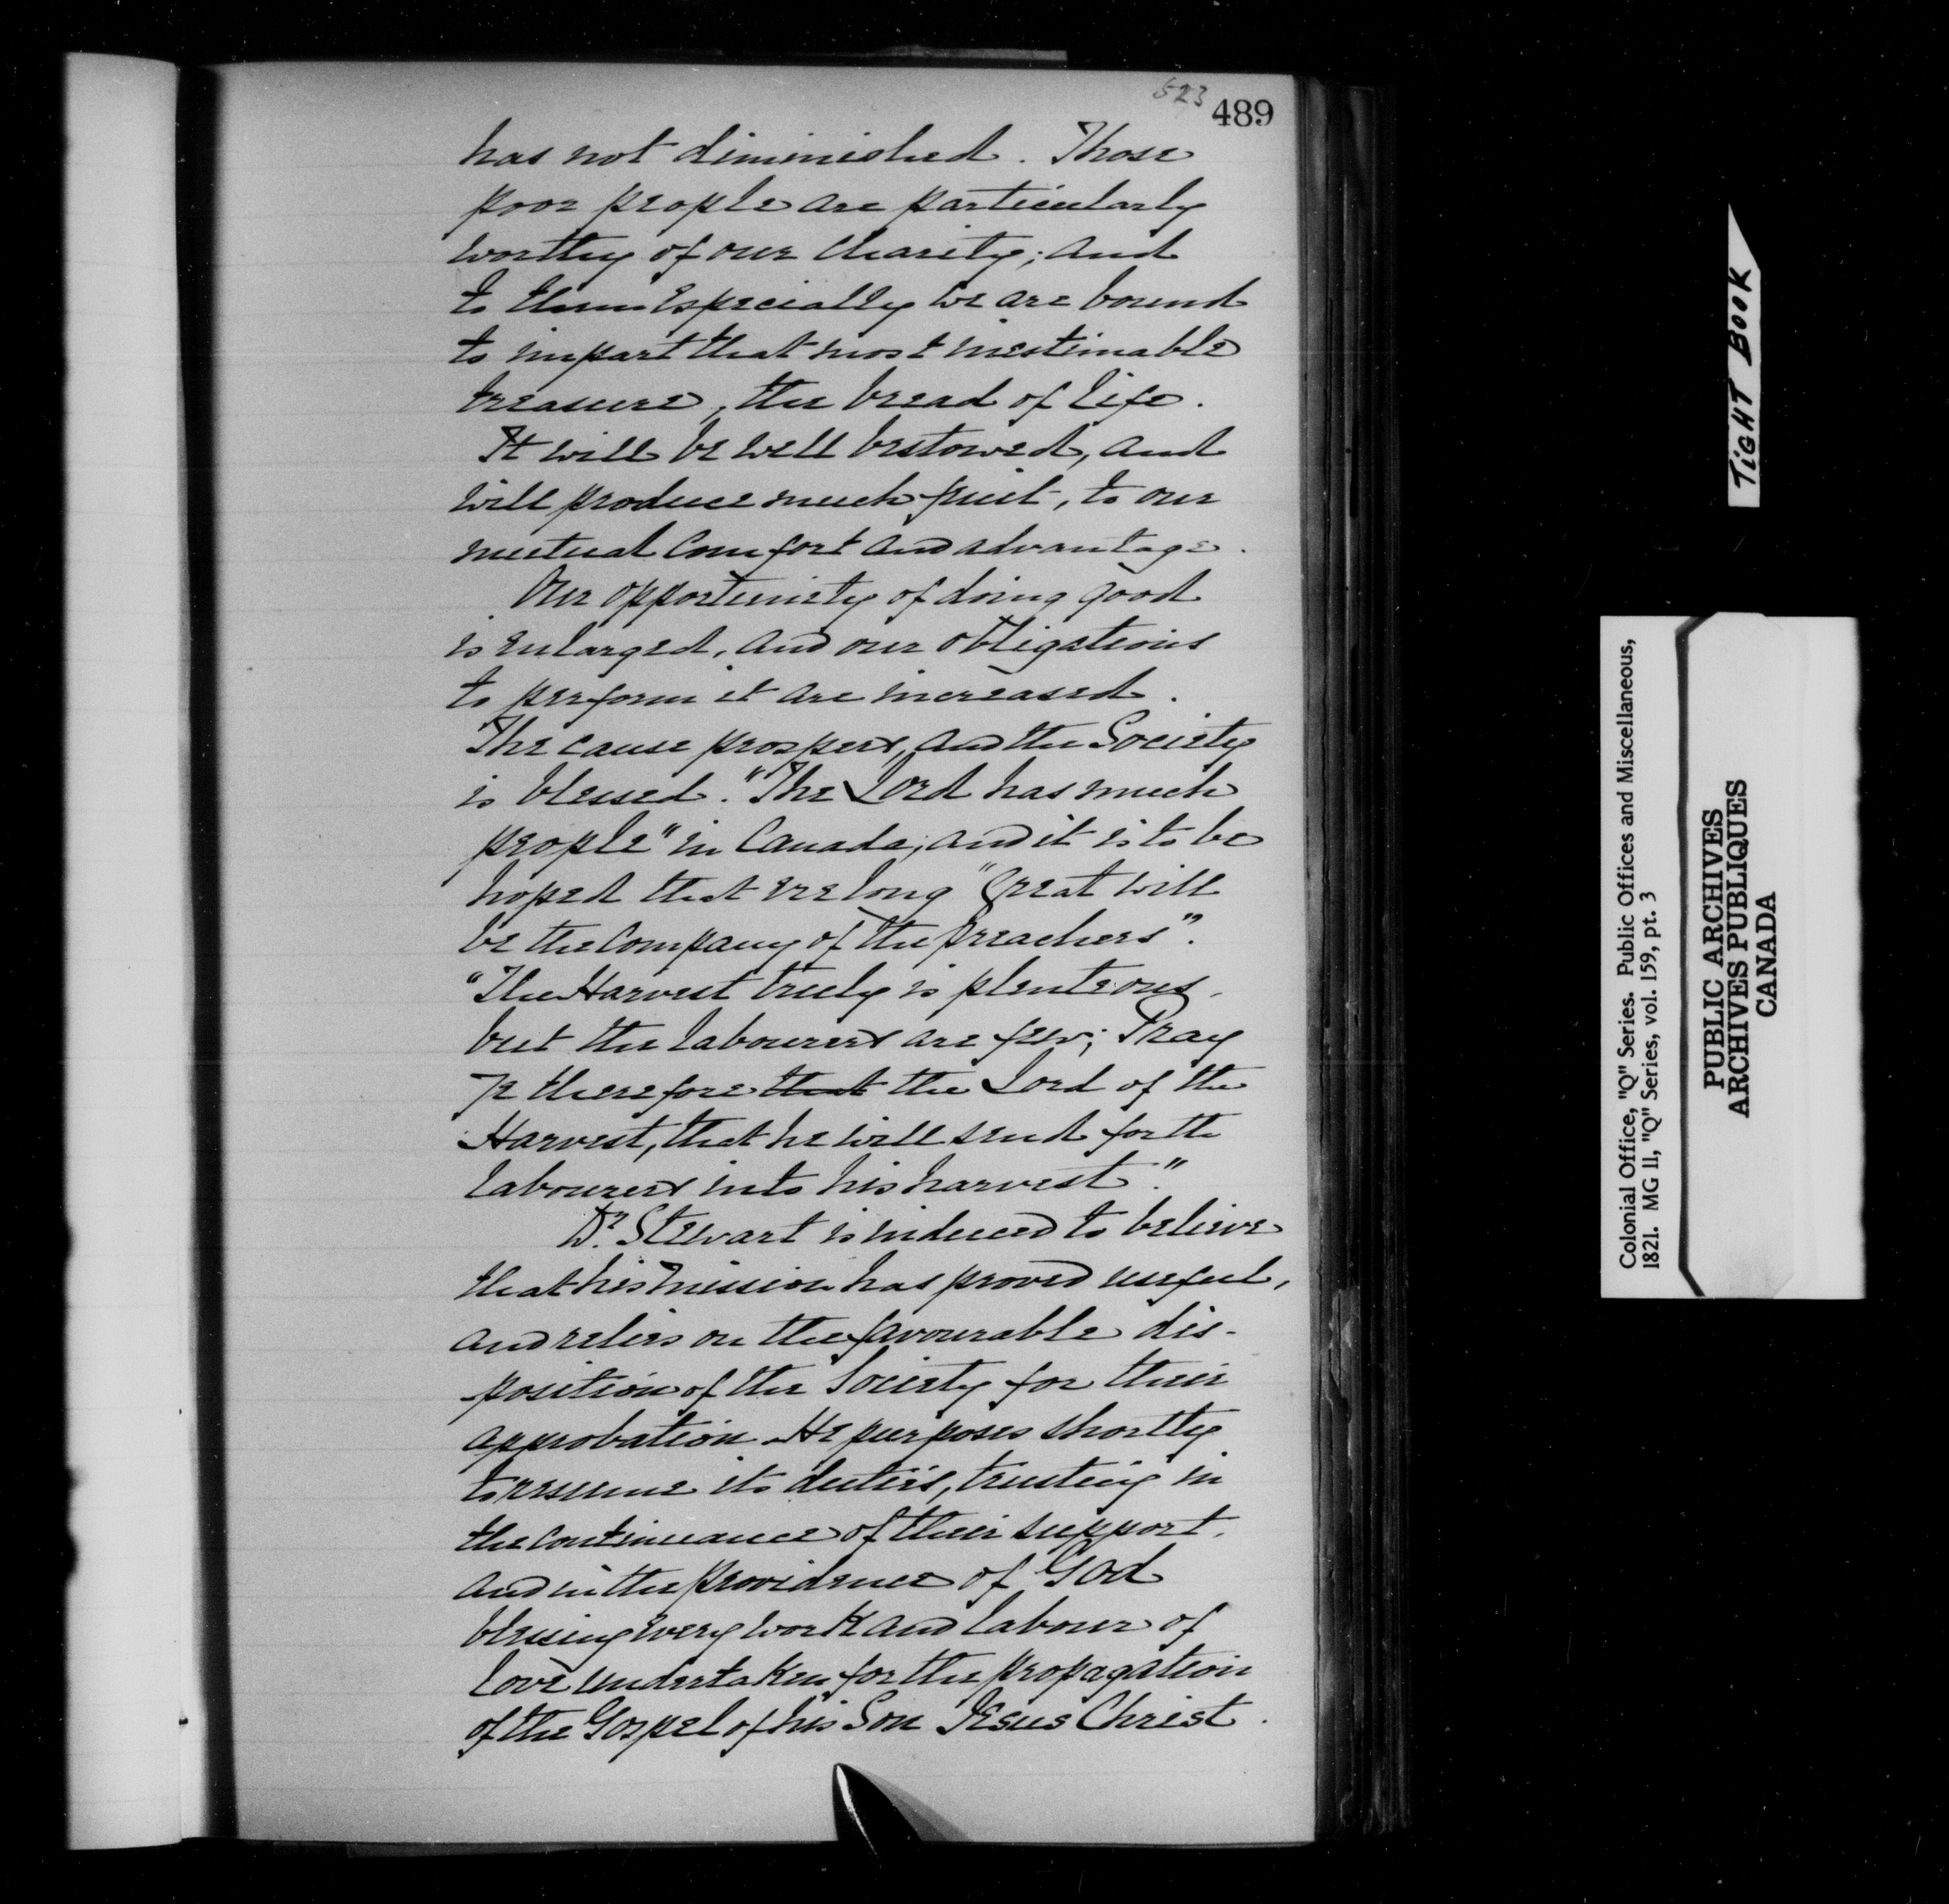 523
489
has not diminished. Those
poor people are particularly
worthy of our charity; and
to them especially we are bound
to impart that most inestimable
treasure, the bread of life.
It will be well bestowed, and
will produce much fruit, to our
mutual comfort and advantage.
Our opportunity of doing good
is enlarged, and our obligations
to perform it are increased.
The cause prospers, and the Society
is blessed. "The Lord has much
people" in Canada; and it is to be
hoped that ere long "Great will
be the Company of the Preachers".
"The Harvest truly is plenteous,
but the labourers are few; Pray
ye therefore that the Lord of the
Harvest, that he will send forth
labourers into his harvest."
Dr. Stewart is induced to believe
that his Mission has proved useful,
and relies on the favourable dis-
position of the Society for their
approbation. He purposes shortly
to resume its duties, trusting in
the continuance of their support,
and in the providence of God
blessing every work and labour of
love undertaken for the propagation
of the Gospel of his Son Jesus Christ.
TIGHT BOOK
Colonial Office, "Q" Series. Public Offices and Miscellaneous,
1821. MG 11, "Q" Series, vol. 159, pt. 3
PUBLIC ARCHIVES
ARCHIVES PUBLIQUES
CANADA